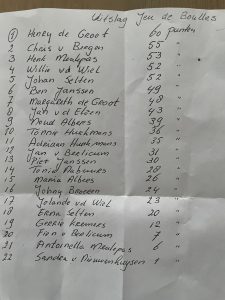 Uitslag Jeu de Boulles
① Henry de Groot 60 punten
2 Chris v Bergen 55 "
3 Henk Maalypas 53 "
4 Willie vd Wiel 52 "
5 Johan Selten 52 "
6 Ron Janssen 49 "
7 Margareth de Groot 48 "
8 Jan vd Elzen 43 "
9 Albers 39 "
10 Tonnie Huekmans 36 "
11 Adriaan Huekmans 35 "
12 Jan v Berlicum 31 "
13 Piet Janssen 30 "
14 Tonia 28 "
15 Maria Albers 26 "
16 Johny 24 "
17 Jolanda vd Wiel 23 "
18 Erna Selten 20 "
19 Gerrie 12 "
20 v Berlicum 7 "
21 Antoinette Maalypas 6 "
22 Sandra v 1 "